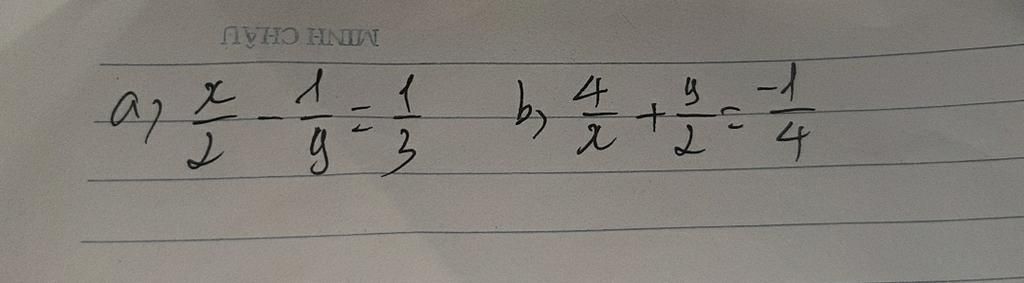 MINH CHÂU
a, x/2 - 1/y = 1/3 b, 4/x + y/2 = -1/4